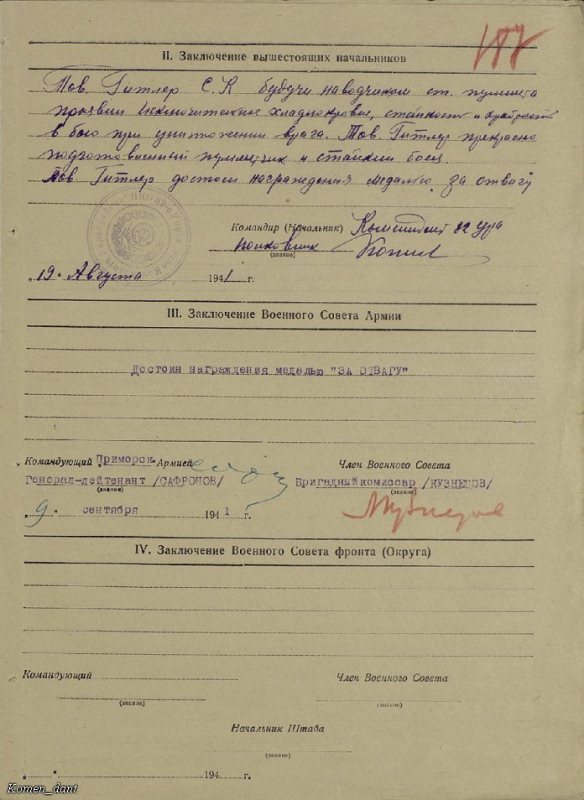 187
II. Заключение вышестоящих начальников
Тов. Гитлер С.К. будучи наводчиком ст. пулимета
проявил исключительное хладнокровие, стойкость и храбрость
в бою при уничтожении врага. Тов. Гитлер прекрасно
подготовленный пулиметчик и стойкий боец.
Тов. Гитлер достоин награждения медалью за отвагу
Командир (Начальник) Комендант 82 ура
полковник
(звание)
19. Августа 1941 г.
III. Заключение Военного Совета Армии
Достоин награждения медалью "ЗА ОТВАГУ"
Командующий Приморск. Армией
Член Военного Совета
Генерал-лейтенант /САФРОНОВ/
(звание)
Бригадный комиссар /КУЗНЕЦОВ/
(звание)
9. сентября 1941 г.
IV. Заключение Военного Совета фронта (Округа)
Командующий
Член Военного Совета
(звание)
(звание)
Начальник Штаба
(звание)
194 г.
Komen_dant